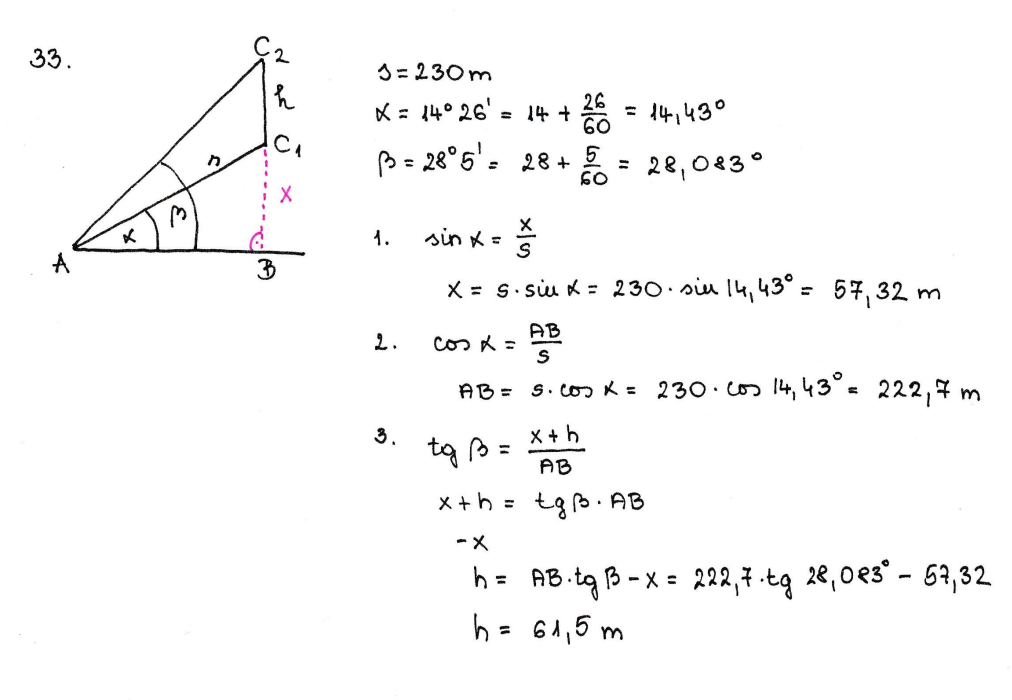 33.
C2
h
C1
s
x
β
α
A
B
s = 230 m
α = 14° 26' = 14 + 26/60 = 14,43°
β = 28° 5' = 28 + 5/60 = 28,083°
1. sin α = x/s
x = s · sin α = 230 · sin 14,43° = 57,32 m
2. cos α = AB/s
AB = s · cos α = 230 · cos 14,43° = 222,7 m
3. tg β = x + h/AB
x + h = tg β · AB
- x
h = AB · tg β - x = 222,7 · tg 28,083° - 57,32
h = 61,5 m